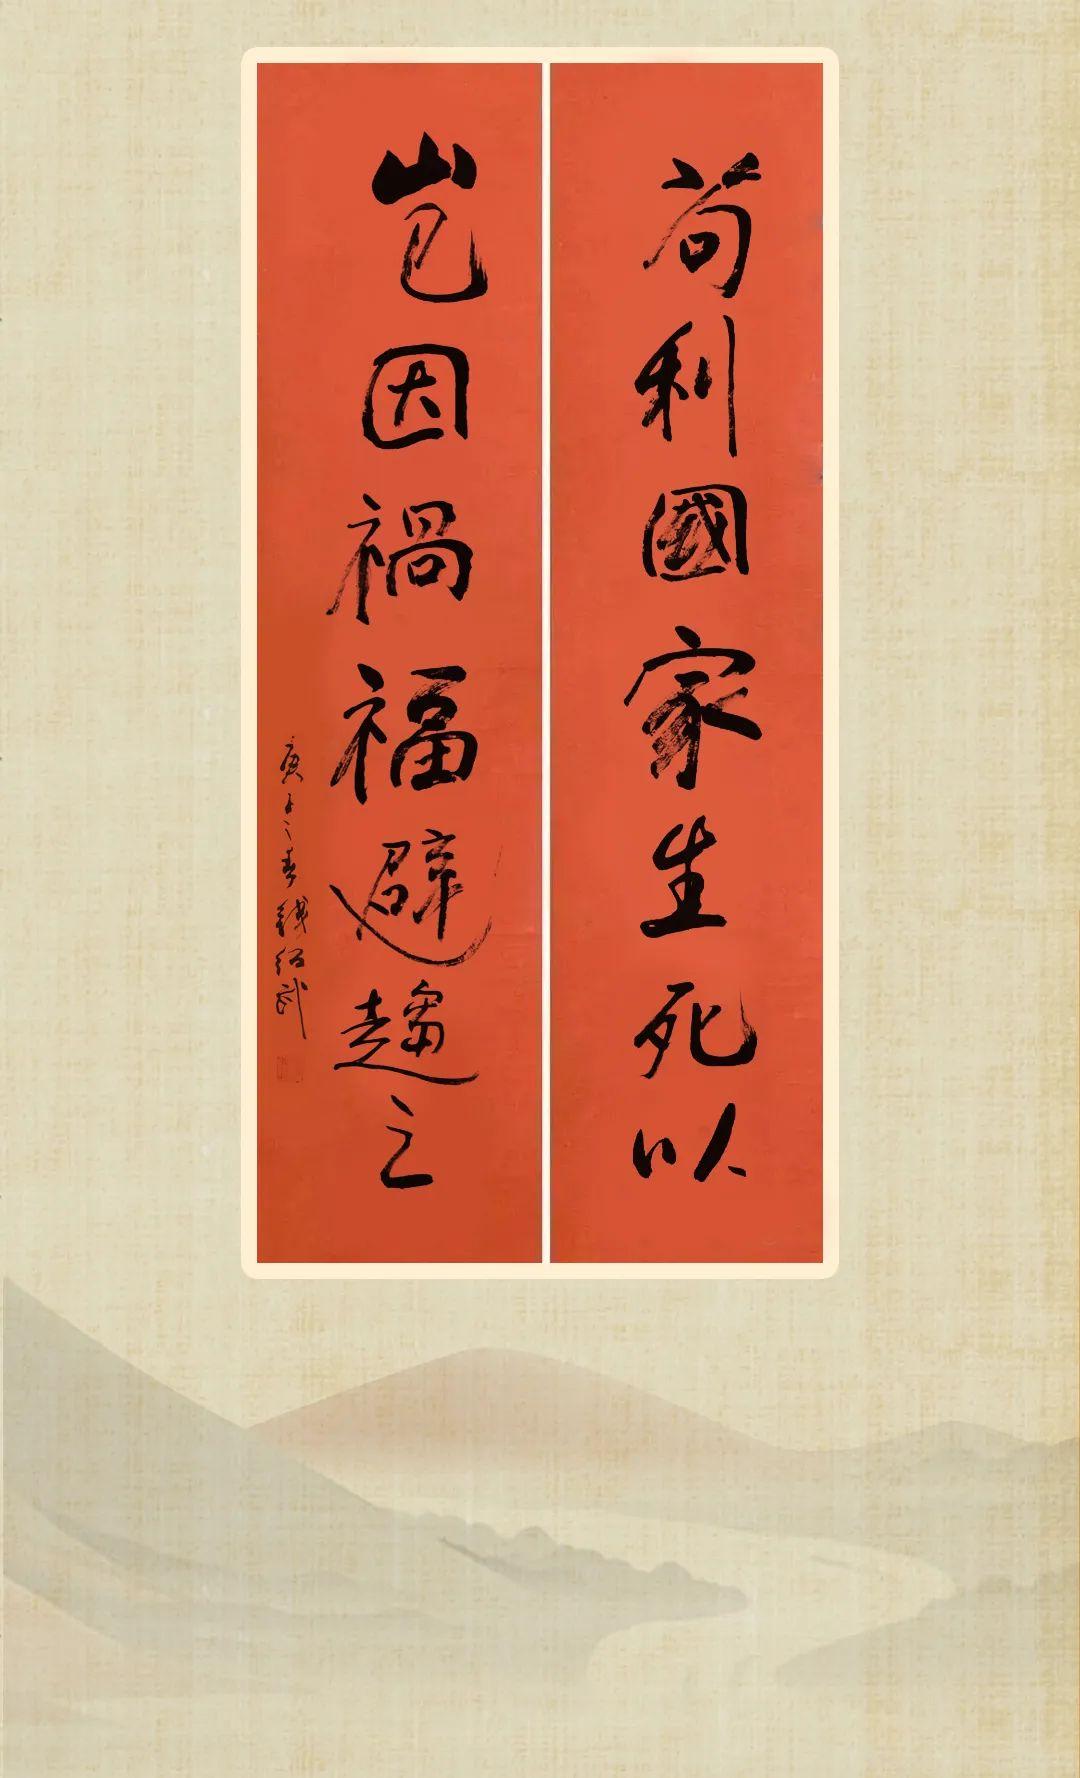 苟利國家生死以
豈因禍福避趨之
庚子春錢绍武